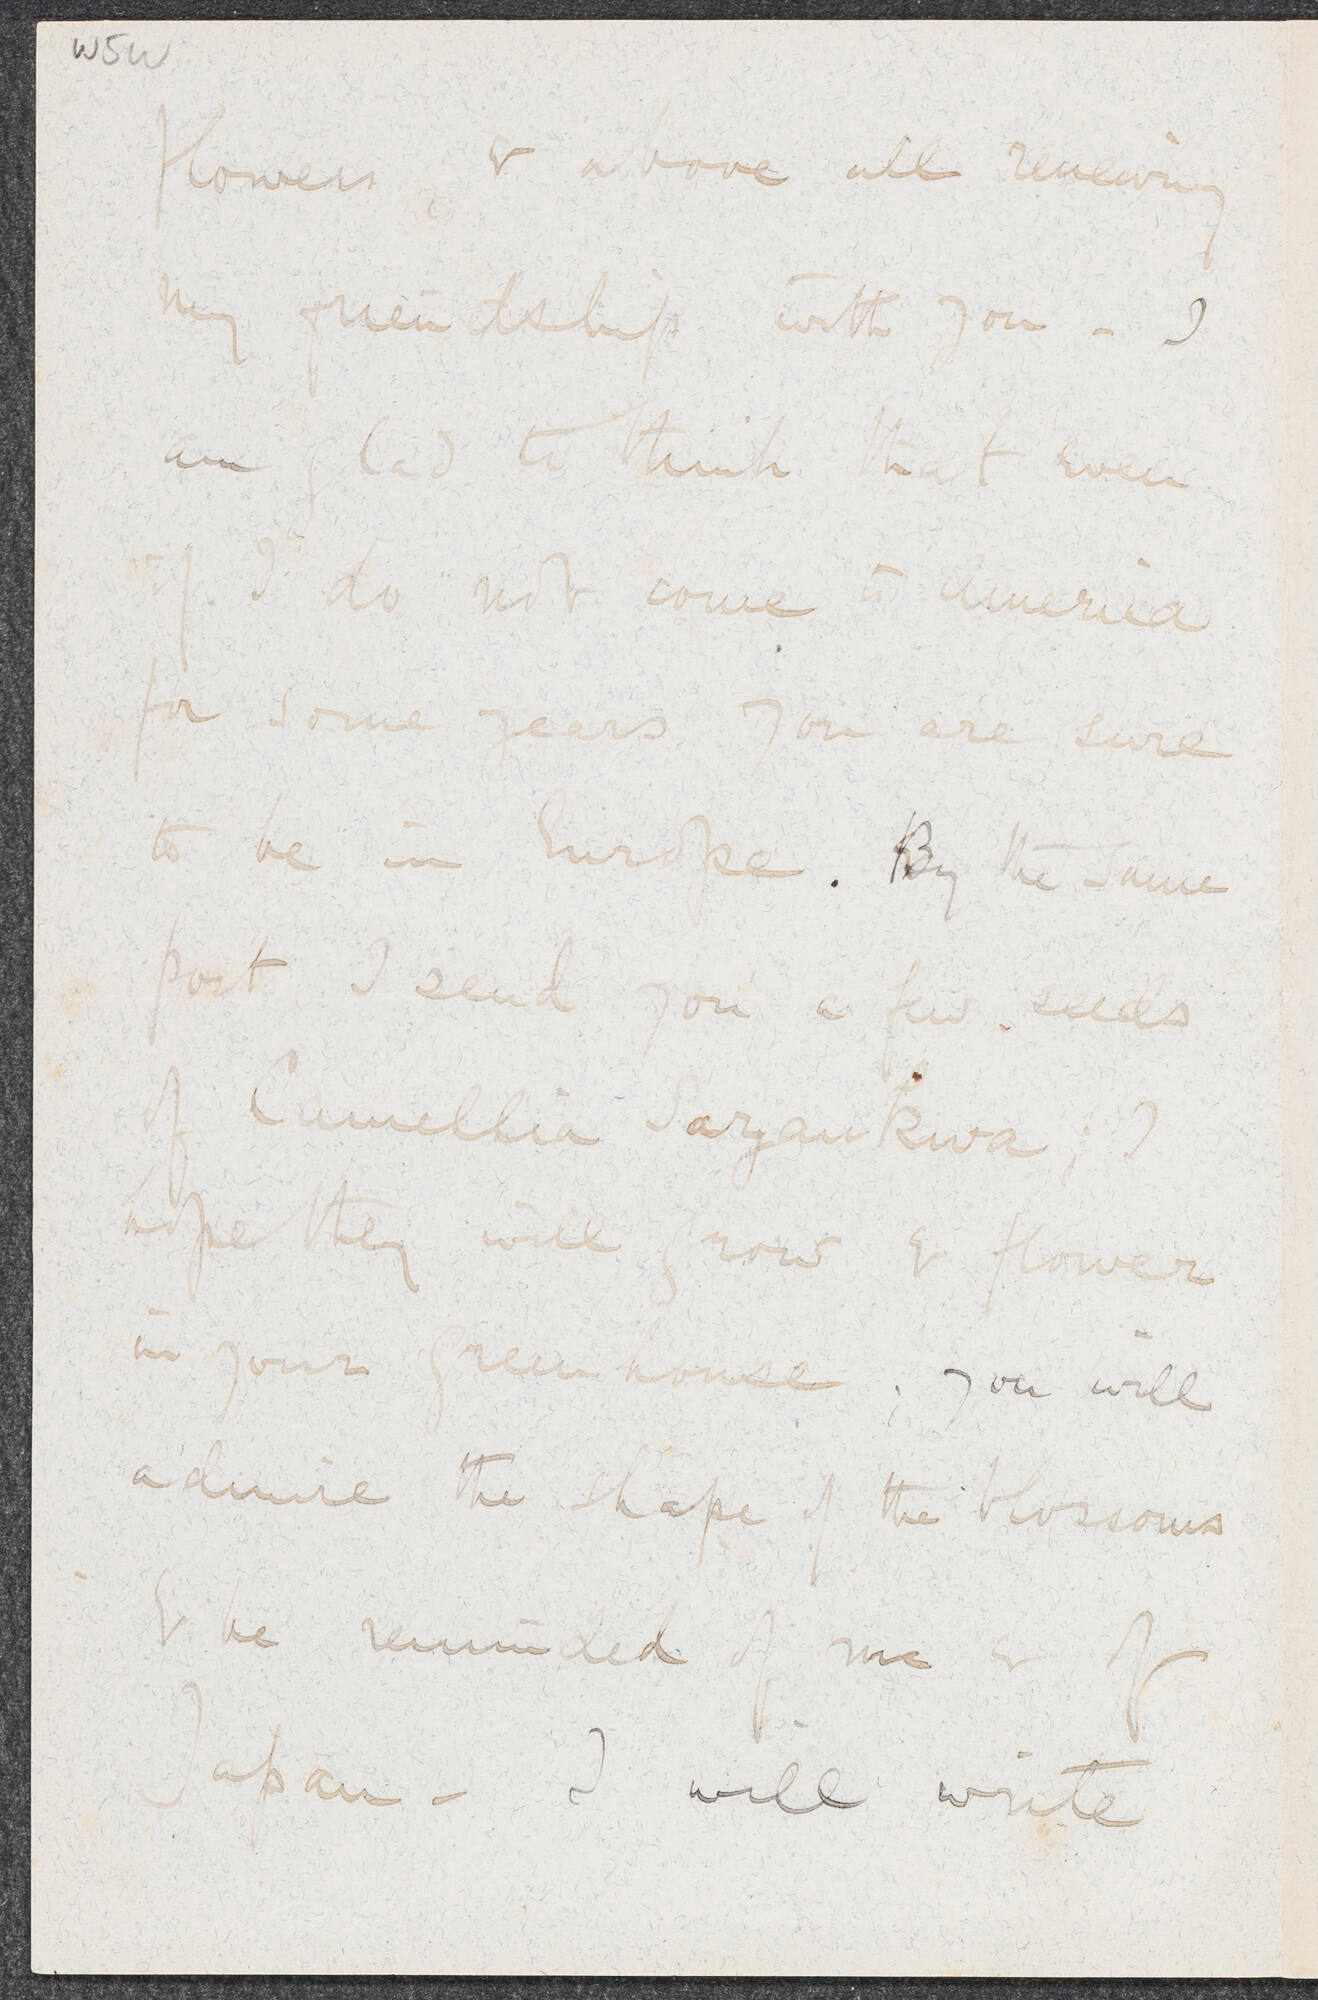 W5W
flowers, & above all renewing
my friendship with you – I
am glad to think that even
if I do not come to America
for some years you are sure
to be in Europe. By the same
post I send you a few seeds
of Camellia Sazankwa; I
hope they will grow & flower
in your greenhouse; you will
admire the shape of the blossoms
& be reminded of me & of
Japan – I will write